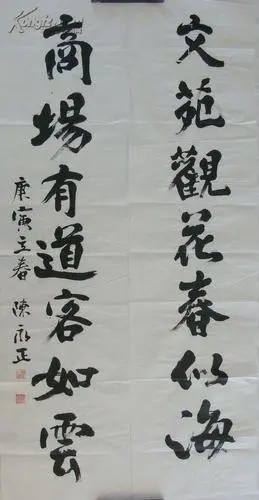 文苑觀花春似海
商場有道客如雲
庚寅立春 陳永正